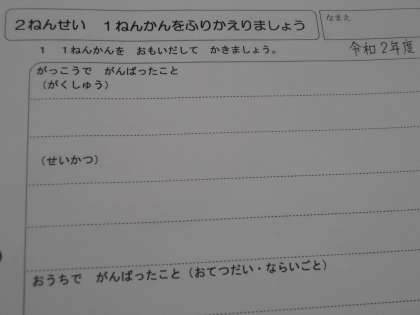 2ねんせい 1ねんかんをふりかえりましょう
なまえ
1 1ねんかんを おもいだして かきましょう。
令和2年度
がっこうで がんばったこと
(がくしゅう)
(せいかつ)
おうちで がんばったこと(おてつだい・ならいごと)